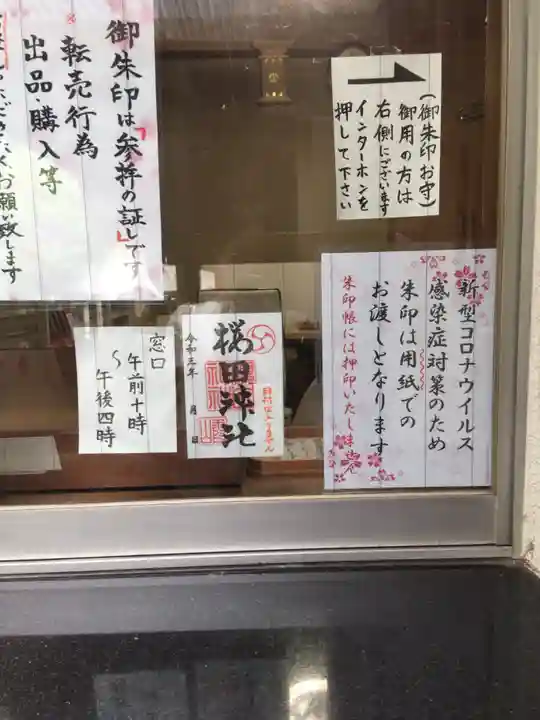 (御朱印お守)
御用の方は
右側にございます
インターホンを
押して下さい
御朱印は「参拝の証し」です
※転売行為
出品・購入等
お願い致します
新型コロナウイルス
感染症対策のため
朱印は用紙での
お渡しとなります
朱印帳には押印いたしません
桜田神社
令和三年 月 日
窓口
午前十時
〜
午後四時